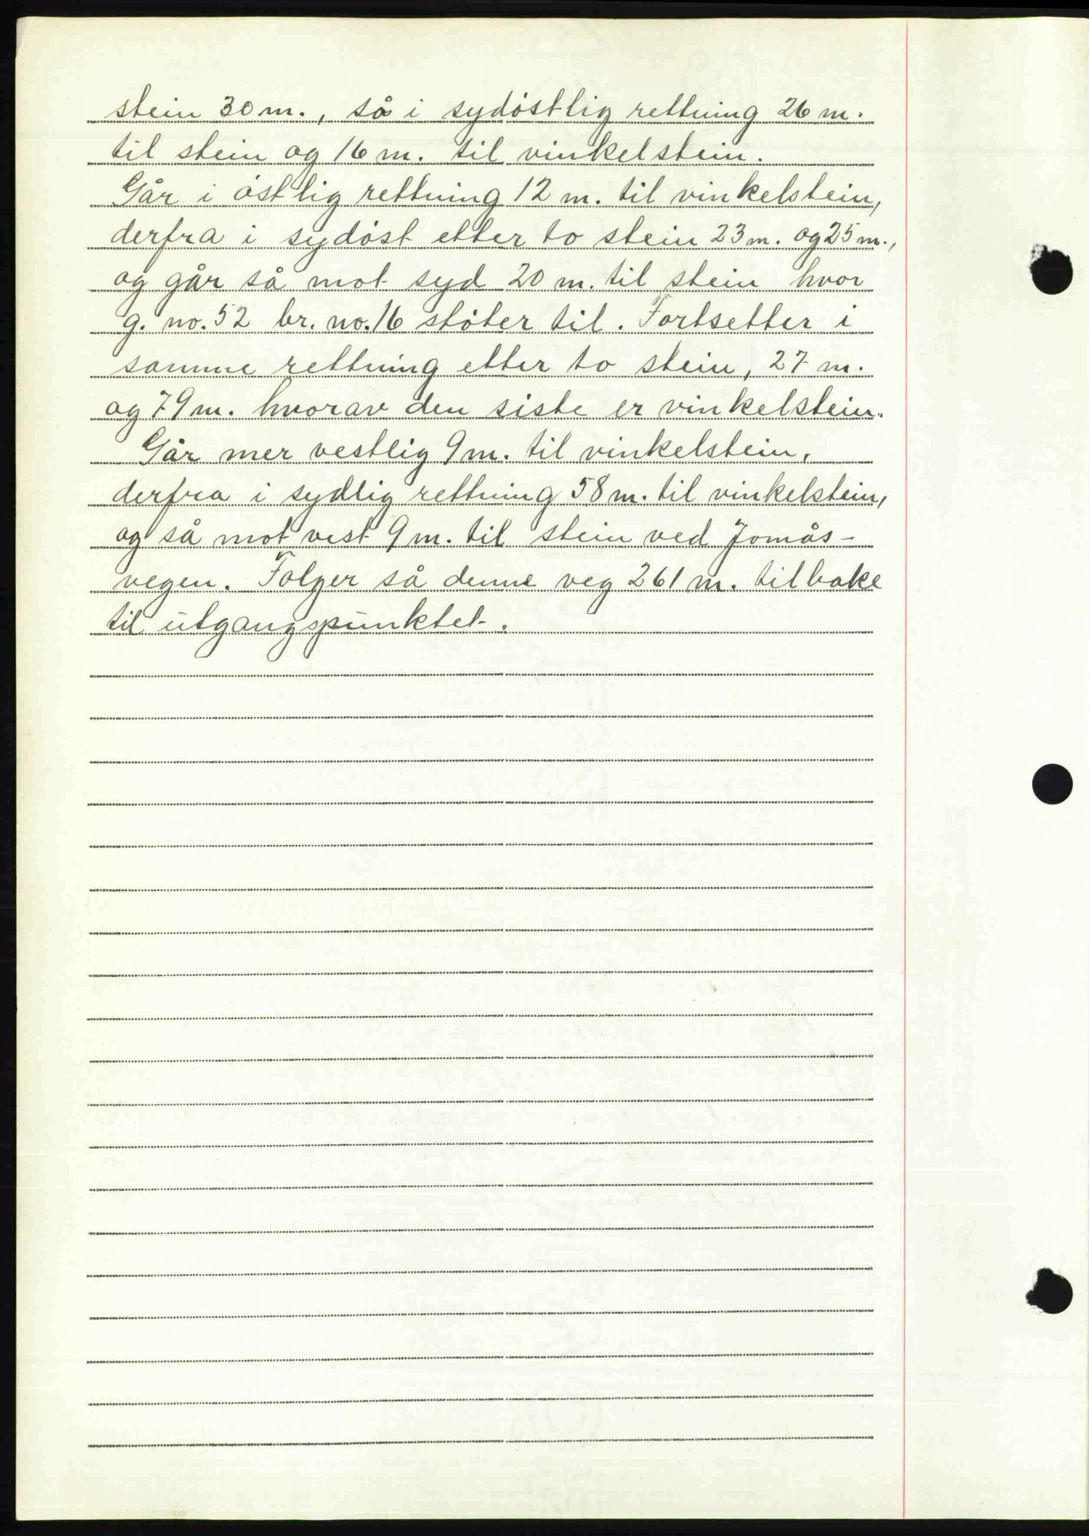 stein 30 m., så i sydöstlig rettning 26 m.
til stein og 16 m. til vinkelstein.
Går i östlig rettning 12 m. til vinkelstein,
derfra i sydöst etter to stein 23 m. og 25 m.,
og går så mot syd 20 m. til stein hvor
g. no. 52 br. no. 16 stöter til. Fortsetter i
samme rettning etter to stein, 27 m.
og 79 m. hvorav den siste er vinkelstein.
Går mer vestlig 9 m. til vinkelstein,
derfra i sydlig rettning 58 m. til vinkelstein,
og så mot vest 9 m. til stein ved Jomås-
vegen. Fölger så denne veg 261 m. tilbake
til utgangspunktet.